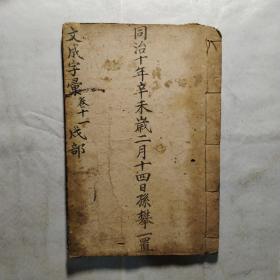 同治十年辛未歲二月十四日孫攀一置
文成字彙
卷十一
戌部